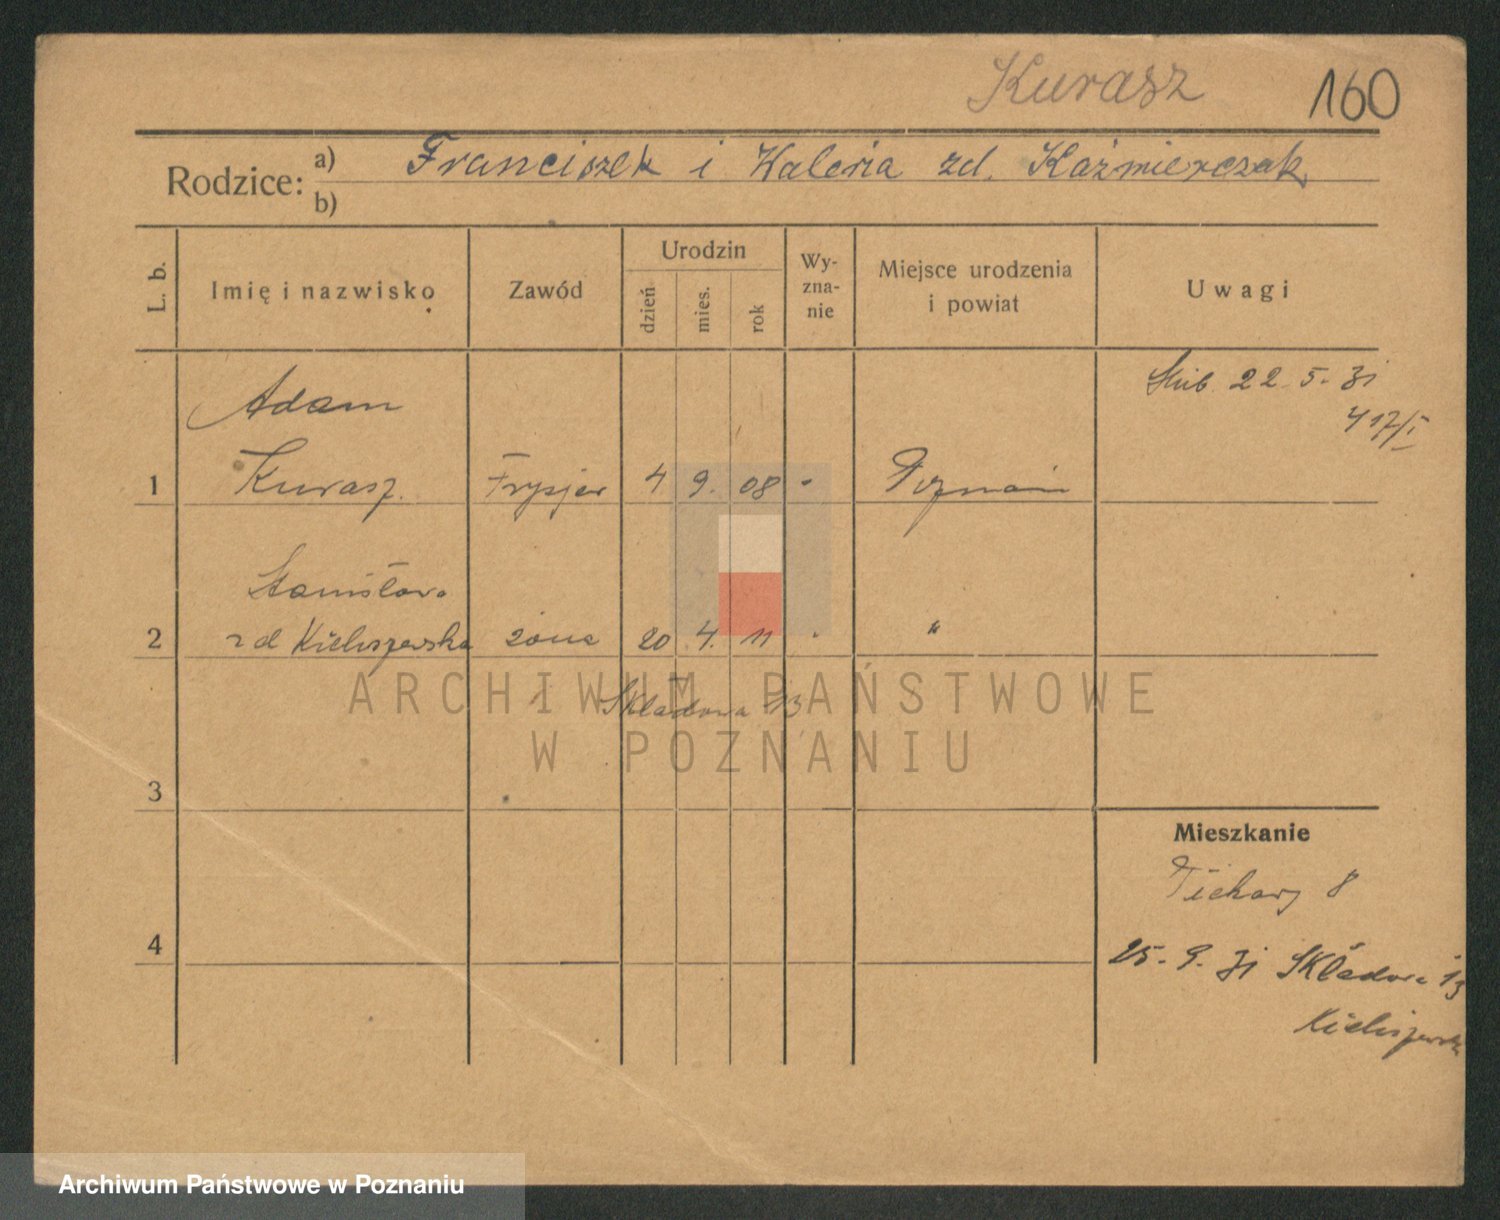 Kurasz 160
Rodzice: a) Franciszek i Waleria zd. Kaźmierczak
b)
L. b.
Imię i nazwisko
Zawód
Urodzin
dzień
mies.
rok
Wy-
zna-
nie
Miejsce urodzenia
i powiat
Uwagi
Adam
ślub 22 5. 31
417/I
1 Kurasz. Fryzjer 4 9. 08 - Poznań
Stanisława
2 zd Kieliszewska żona 20 4. 11 "
Składowa 13
ARCHIWUM PAŃSTWOWE
W POZNANIU
3
Mieszkanie
Piekary 8
4
25. 9. 31 Składowa 13
Kieliszewska
Archiwum Państwowe w Poznaniu